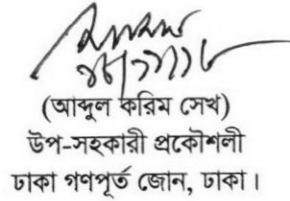 (আব্দুল করিম সেখ)
উপ-সহকারী প্রকৌশলী
ঢাকা গণপূর্ত জোন, ঢাকা।